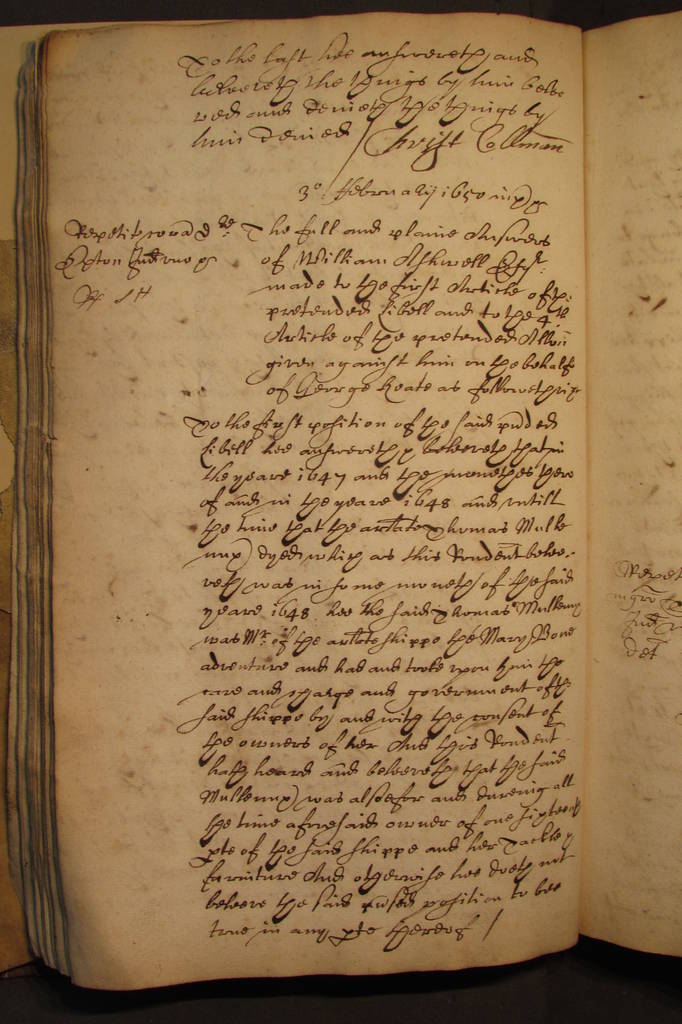 To the last hee answereth, and
beleeveth the things by him belee
ved and denieth the things by
him denied / Christ Collman
3o February 1650
Repetit coram d re
Exton Jud
The full and plaine Answers
of William Ashwell Esqr
made to the first Article of the
pretended Libell and to the 4th
Article of the pretended Allon
given against him on the behalfe
of George Keate as followeth
To the first position of the said
Libell hee answereth & beleeveth that in
the yeare 1647 and the monethes there
of and in the yeare 1648 and untill
the time that the arlate Thomas Mulle
dyed which as this Rondent belee-
veth, was in some moneth of the said
yeare 1648 hee the said Thomas
was Mr of the arlate shippe the Mary Bone
adventure and had and tooke upon him the
care and charge and government of the
said shippe by and with the consent of
the owners of her And this Rondent
hath heard and beleeveth that the said
was alsoe for and dureing all
the time aforesaid owner of one sixteenth
pte of the said shippe and her Tackle &
furniture And otherwise hee doeth not
beleeve the said position to bee
true in any pte thereof /
Repet
Jud
det